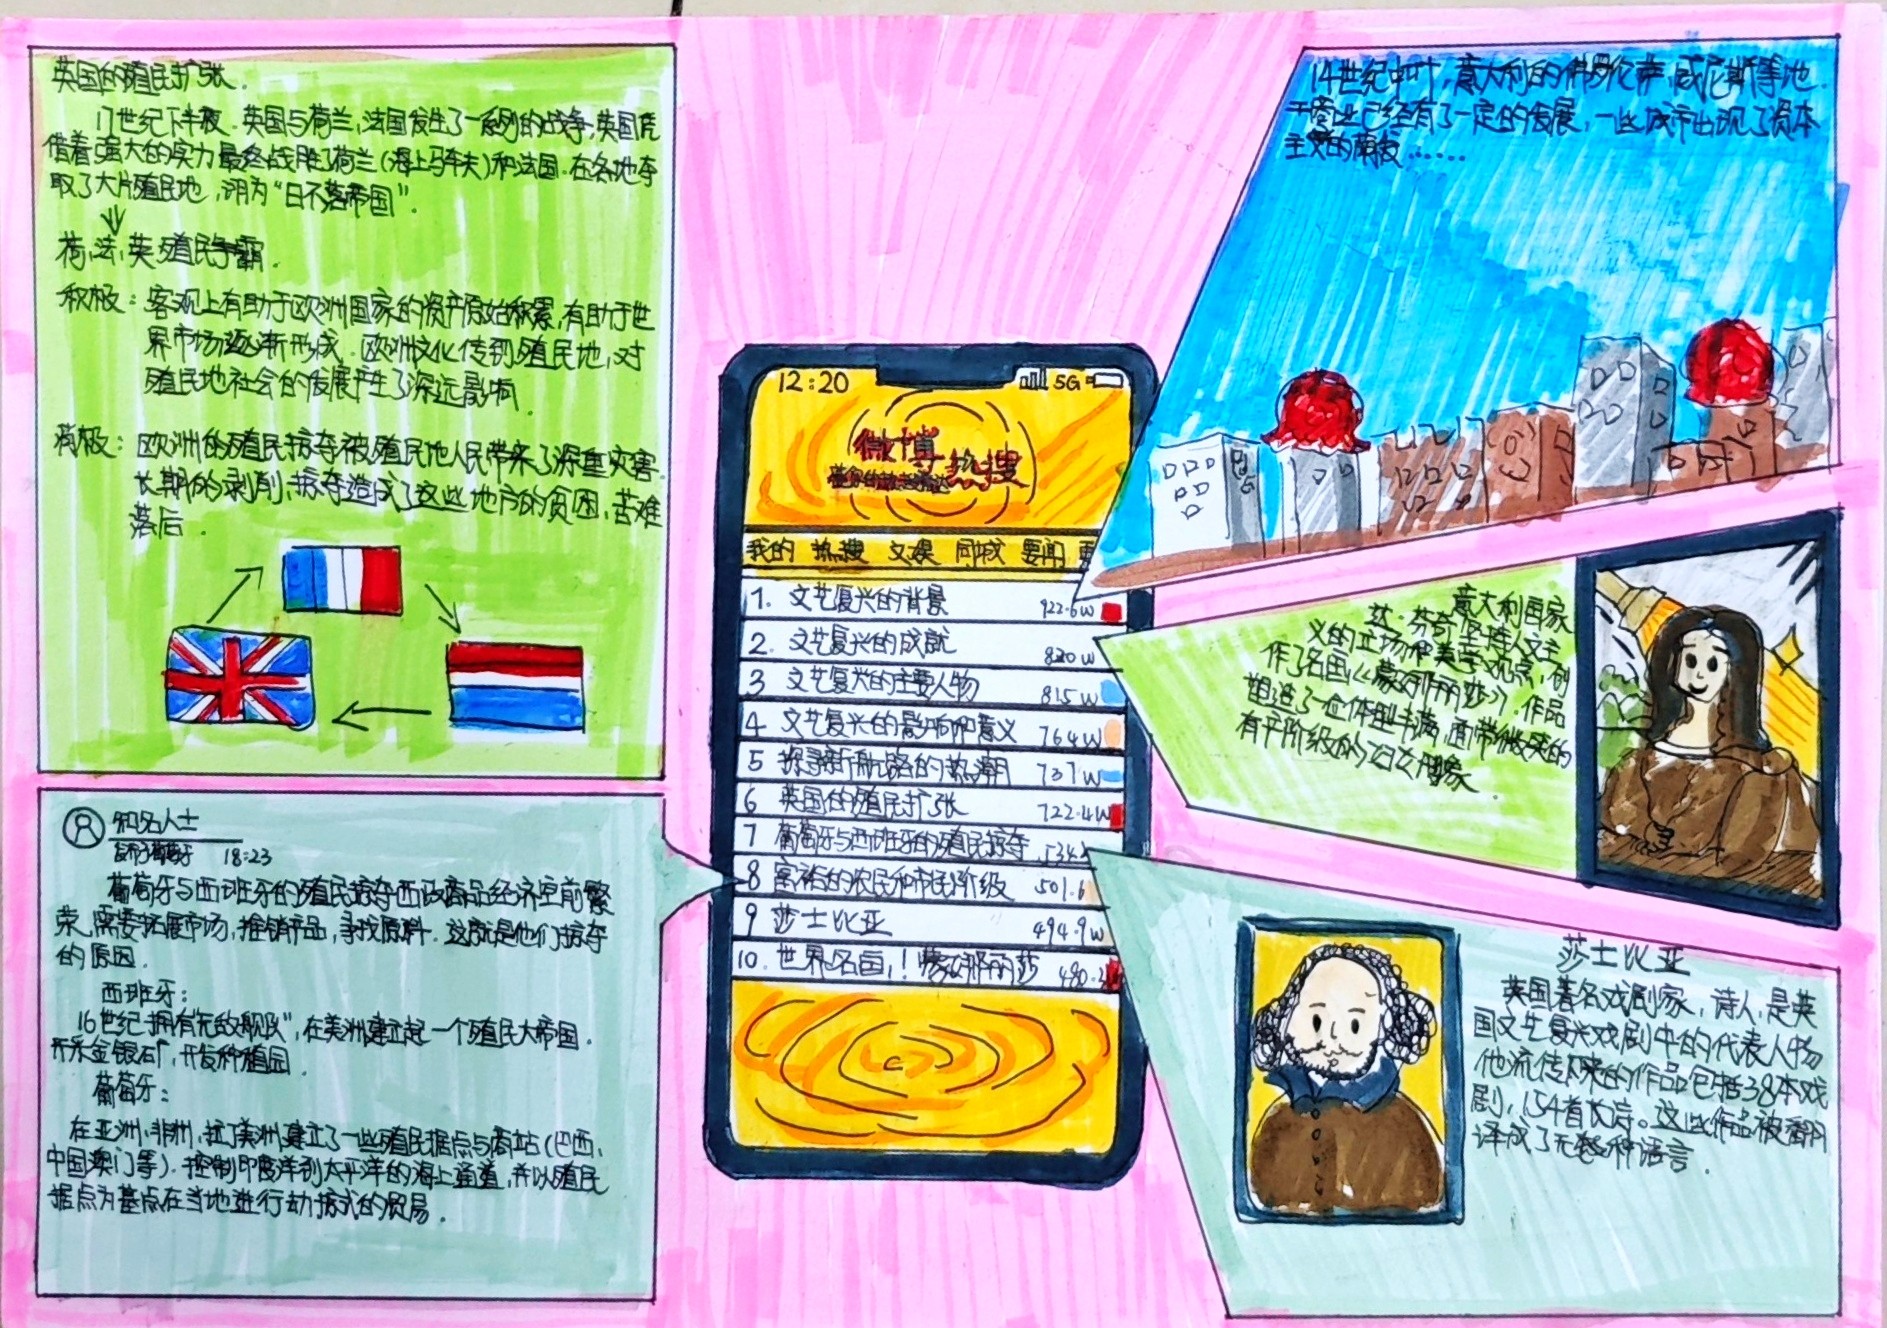 英国的殖民扩张.
17世纪下半夜.英国与荷兰,法国发生了一系列的战争,英国凭
借着强大的实力最终战胜了荷兰(海上马车夫)和法国.在各地夺
取了大片殖民地,谓为"日不落帝国".
荷,法,英殖民争霸.
积极:客观上有助于欧洲国家的资产原始积累,有助于世
界市场逐渐形成.欧洲文化传到殖民地,对
殖民地社会的发展产生了深远影响.
消极:欧洲的殖民掠夺被殖民地人民带来了深重灾害.
长期的剥削,掠夺造成了这些地方的贫困,苦难
落后.
知名人士
发布于葡萄牙 18:23
葡萄牙与西班牙的殖民掠夺西欧商品经济空前繁
荣,需要拓展市场,推销产品,寻找原料.这就是他们掠夺
的原因.
西班牙:
16世纪拥有"无敌舰队",在美洲建立起一个殖民大帝国.
开采金银矿,开发种植园.
葡萄牙:
在亚洲,非洲,拉丁美洲建立了一些殖民据点与商站(巴西,
中国澳门等).控制印度洋到太平洋的海上通道,并以殖民
据点为基点在当地进行劫掠式的贸易.
12:20 5G
微博热搜
我的 热搜 文娱 同城 要闻
1. 文艺复兴的背景 922.6w
2. 文艺复兴的成就 820w
3 文艺复兴的主要人物 815w
4 文艺复兴的影响和意义 764w
5 探寻新航路的热潮 737w
6 英国的殖民扩张 722.4w
7 葡萄牙与西班牙的殖民掠夺
8 富裕的农民和市民阶级 501.6
9 莎士比亚 494.9w
10. 世界名画,!蒙娜丽莎 480.
14世纪中叶,意大利的佛罗伦萨,威尼斯等地.
工商业已经有了一定的发展,一些城市出现了资本
主义的萌芽......
意大利画家
达·芬奇坚持人文主
义的立场和美学观点,创
作了名画《蒙娜丽莎》.作品
塑造了一位体型丰满,面带微笑的
有产阶级的妇女形象.
莎士比亚
英国著名戏剧家,诗人,是英
国文艺复兴戏剧中的代表人物
他流传下来的作品包括38本戏
剧,154首长诗。这些作品被翻
译成了无数种语言.